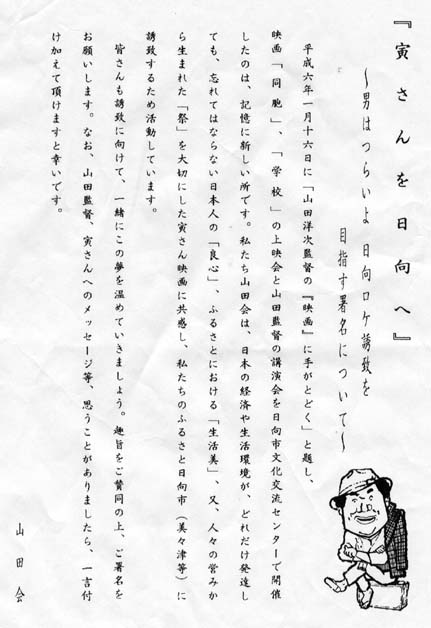 『寅さんを日向へ』
～男はつらいよ 日向ロケ誘致を
目指す署名について～
平成六年一月十六日に「山田洋次監督の『映画』に手がとどく」と題し、
映画「同胞」、「学校」の上映会と山田監督の講演会を日向市文化交流センターで開催
したのは、記憶に新しい所です。私たち山田会は、日本の経済や生活環境が、どれだけ発達し
ても、忘れてはならない日本人の「良心」、ふるさとにおける「生活美」、又、人々の営みか
ら生まれた「祭」を大切にした寅さん映画に共感し、私たちのふるさと日向市（美々津等）に
誘致するため活動しています。
皆さんも誘致に向けて、一緒にこの夢を温めていきましょう。趣旨をご賛同の上、ご署名を
お願いします。なお、山田監督、寅さんへのメッセージ等、思うことがありましたら、一言付
け加えて頂けますと幸いです。
山田会